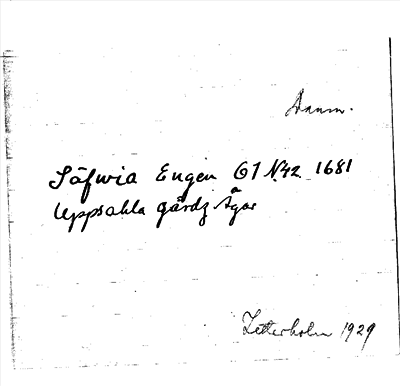 Danm.
Säfwia Engen G1 N42 1681
Uppsahla gärdz Ägor
Zetterholm 1929